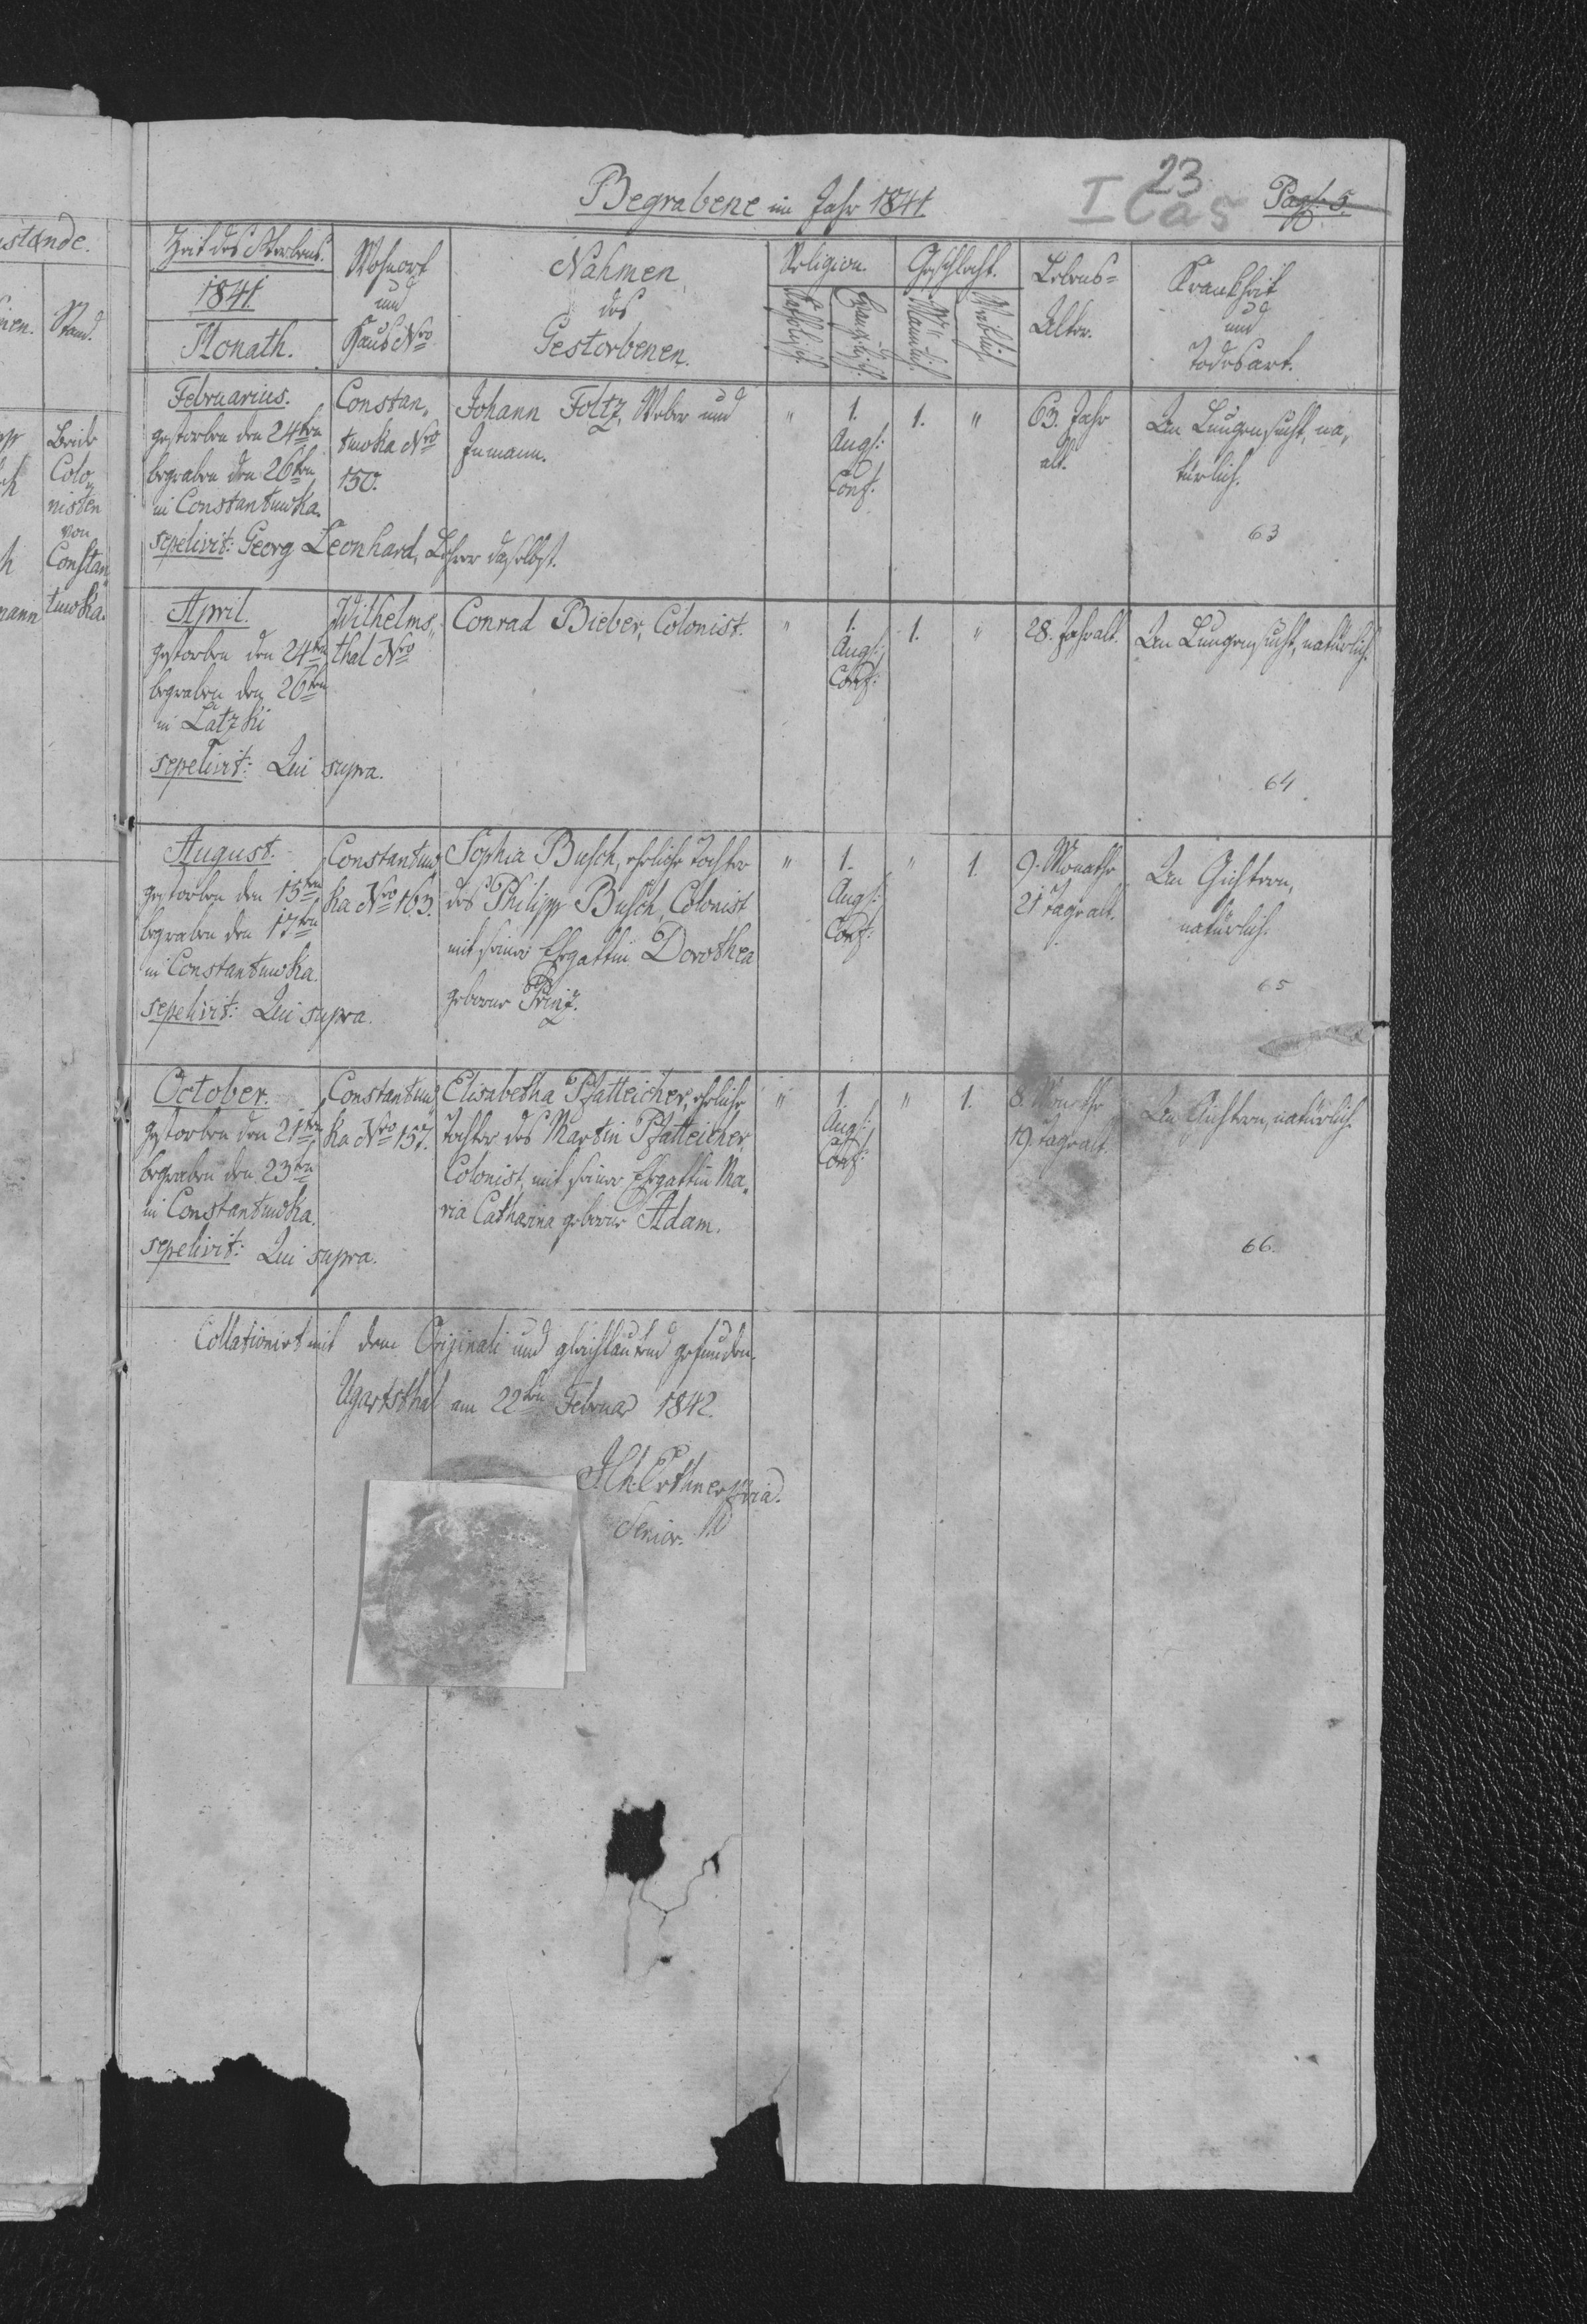 Begrabene im Jahr 1841.
23
I Ca 5
Pag: 5.
Zeit des Sterbens.
1841.
Monath.
Wohnort
und
Haus Nro
Nahmen
des
Gestorbenen.
Religion.
Katholisch.
Evangelisch.
Geschlecht.
Männlich.
Weiblich.
Lebens=
Alter.
Krankheit
und
Todesart.
Februarius.
gestorben den 24ten
begraben den 26ten
in Constantuwka.
sepelivit: Georg Leonhard, Lehrer daselbst.
Constan„
tuwka Nro
150.
Johann Foltz, Weber und
Inmann.
" 1. 1. "
Augs:
Conf:
63. Jahr
alt.
An Lungensucht, na„
türlich.
63
April.
gestorben den 24ten
begraben den 26ten
in Latzki
sepelivit: Qui supra.
Wilhelms„
thal Nro
Conrad Bieber, Colonist.
" 1. 1. "
Augs:
Conf:
28. Jahr alt.
An Lungensucht, natürlich.
64
August.
gestorben den 15ten
begraben den 17ten
in Constantuwka.
sepelivit: Qui supra.
Constantuw„
ka Nro 163.
Sophia Busch, eheliche Tochter
des Philipp Busch, Colonist
mit seiner Ehgattin Dorothea
geborne Prinz.
" 1. " 1.
Augs:
Conf:
9. Monathe
21 Tage alt.
An Gichtern,
natürlich.
65
October.
gestorben den 21ten
begraben den 23ten
in Constantuwka.
sepelivit: Qui supra.
Constantuw„
ka Nro 157.
Elisabetha Pfatteicher, eheliche
Tochter des Martin Pfatteicher,
Colonist, mit seiner Ehgattin Ma„
ria Catharina geborne Adam.
" 1. " 1.
Augs:
Conf:
8. Monathe
19. Tage alt.
An Gichtern, natürlich.
66.
Collationirt mit dem Originali und gleichlautend gefunden.
Ugartsthal am 22ten Februar 1842.
Senior.
istande.
Stand.
Beide
Colo„
nisten
von
Constan„
tuwka.